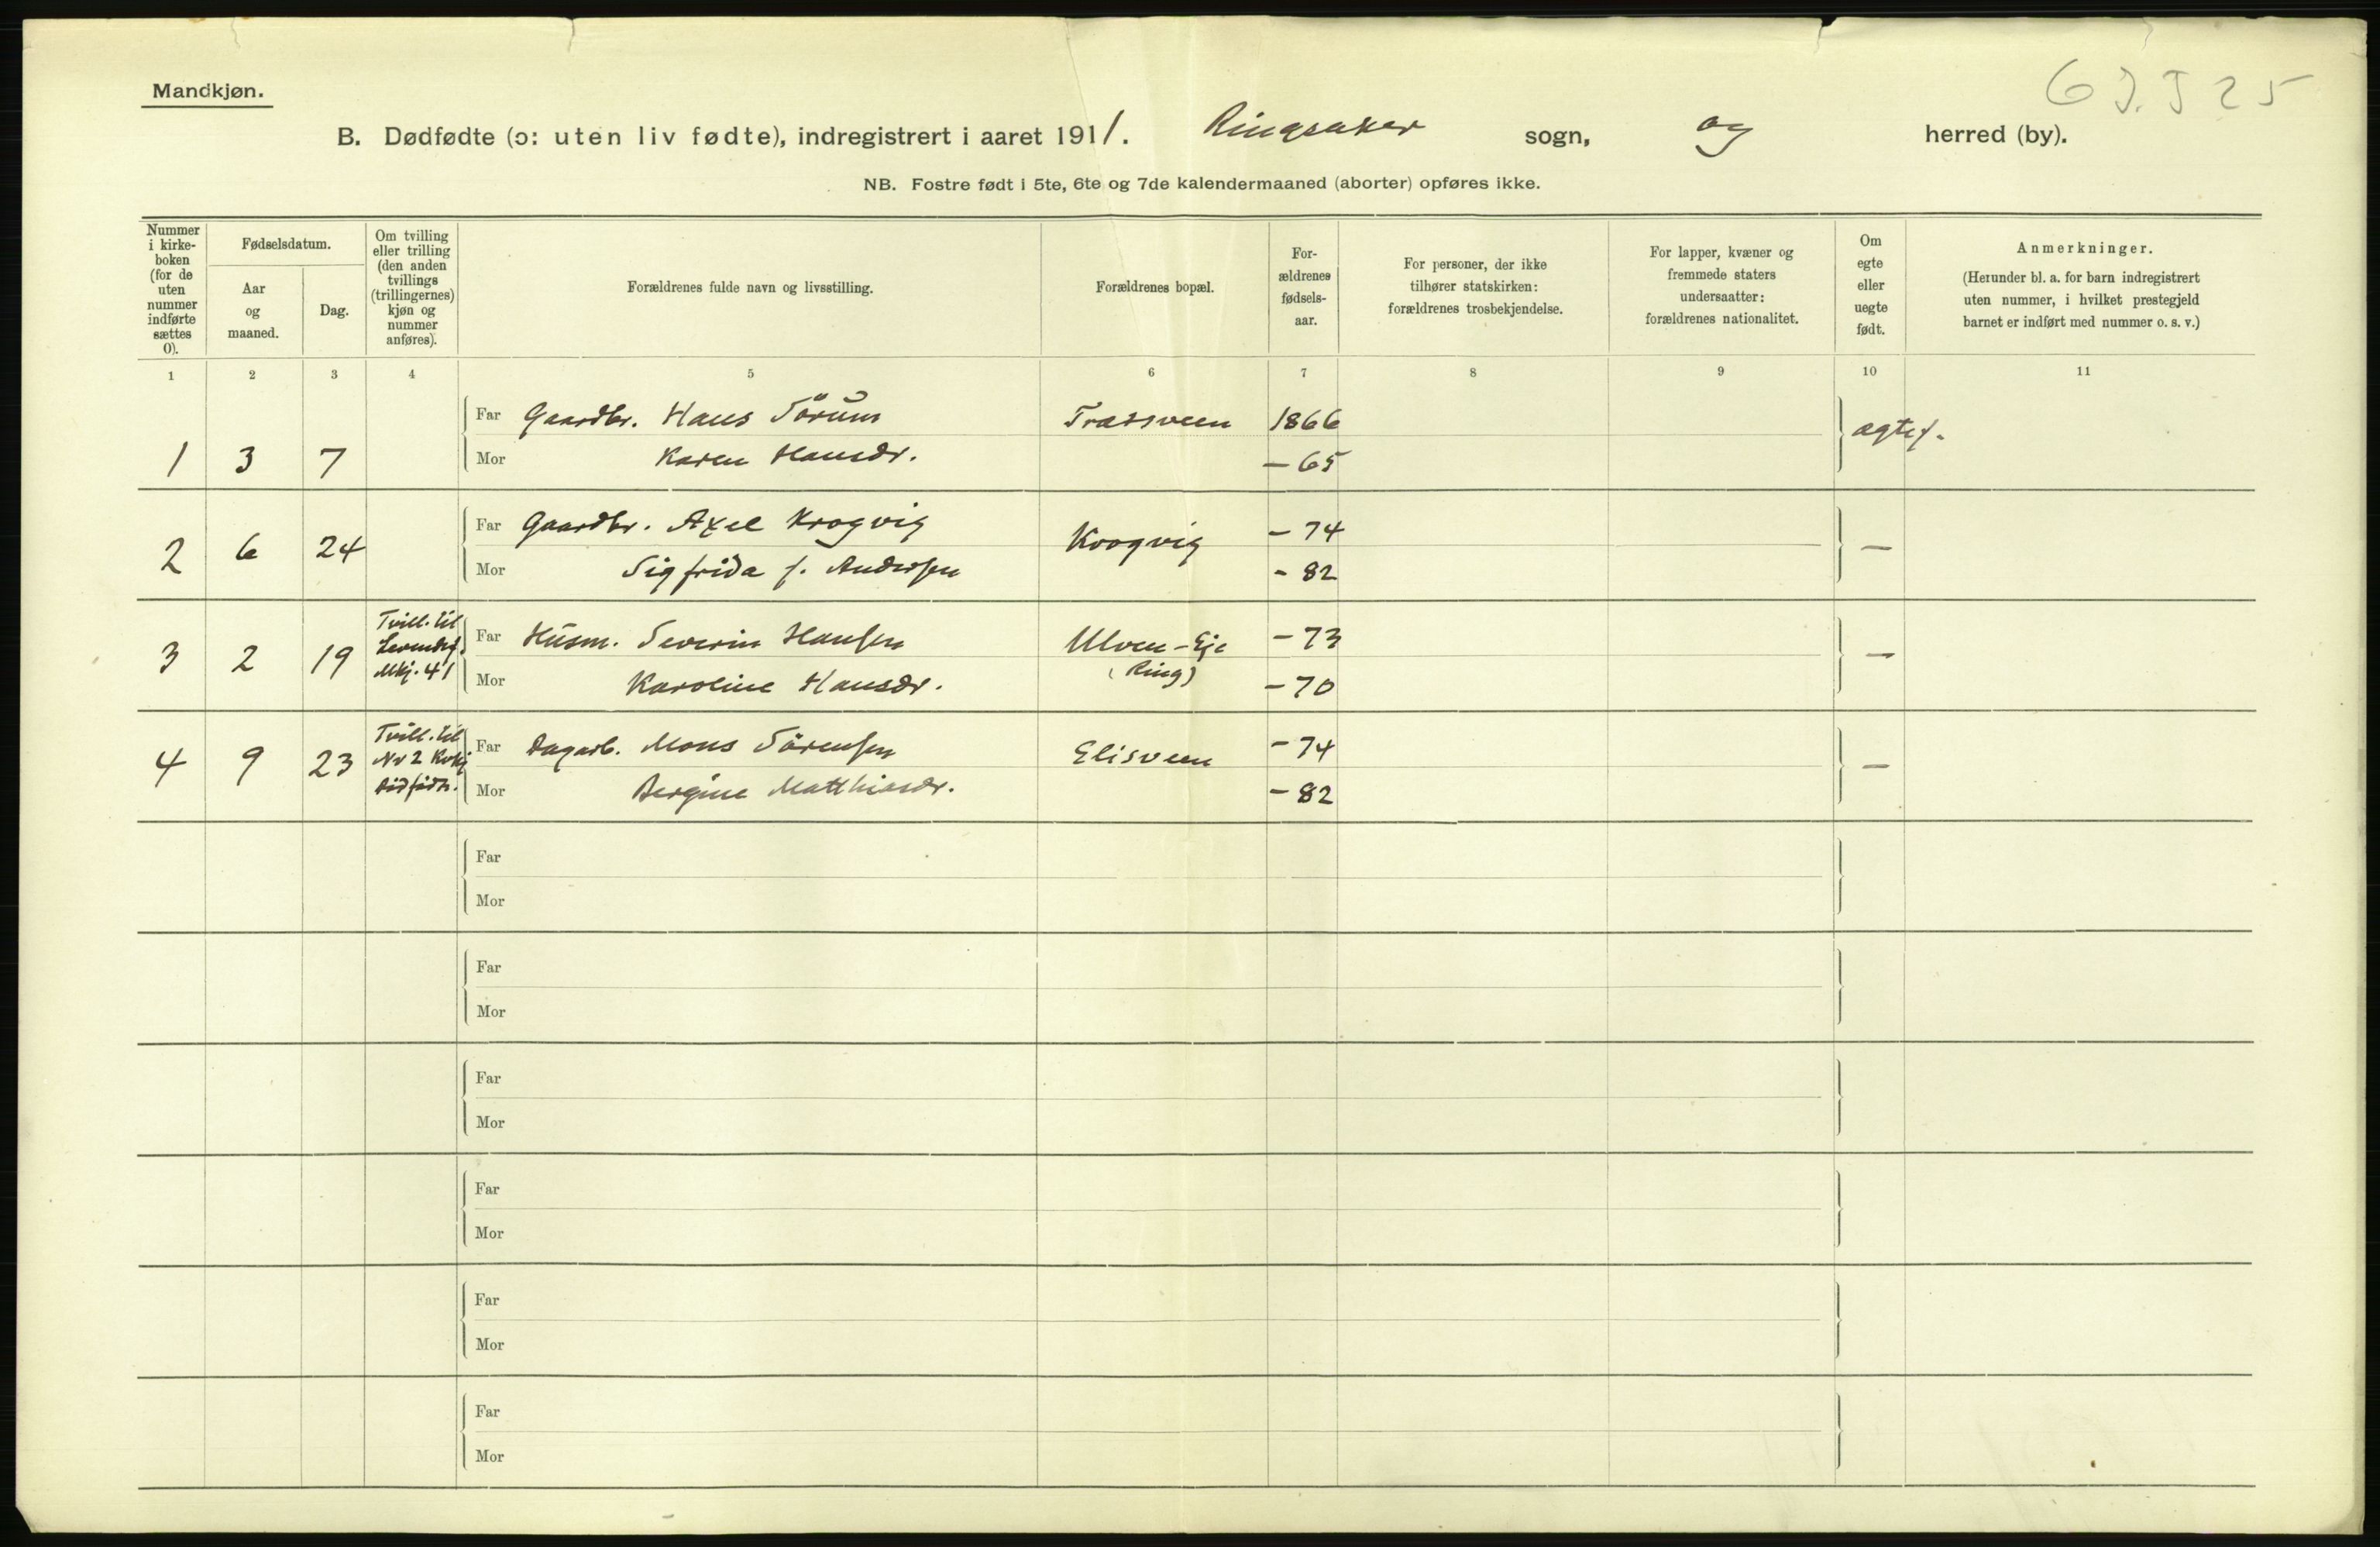 Mandkjøn.
6 J. J 25
B. Dødfødte (ɔ: uten liv fødte), indregistrert i aaret 1911. Ringsaker sogn, og herred (by).
NB. Fostre født i 5te, 6te og 7de kalendermaaned (aborter) opføres ikke.
Nummer
i kirke-
boken
(for de
uten
nummer
indførte
sættes
0).
Fødselsdatum.
Aar
og
maaned.
Dag.
Om tvilling
eller trilling
(den anden
tvillings
(trillingernes)
kjøn og
nummer
anføres).
Forældrenes fulde navn og livsstilling.
Forældrenes bopæl.
For-
ældrenes
fødsels-
aar.
For personer, der ikke
tilhører statskirken:
forældrenes trosbekjendelse.
For lapper, kvæner og
fremmede staters
undersaatter:
forældrenes nationalitet.
Om
egte
eller
uegte
født.
Anmerkninger.
(Herunder bl. a. for barn indregistrert
uten nummer, i hvilket prestegjeld
barnet er indført med nummer o. s. v.)
1 2 3 4 5 6 7 8 9 10 11
Far Gaardbr. Hans Sörum Træsveen 1866 ægtef.
1 3 7 Mor Karen Hansdr. - 65
Far Gaardbr. Axel Krogvig Krogvig - 74 —
2 6 24 Mor Sigfrida f. Andersen - 82
Tvill. til
Levendef.
Mkj. 41
Far Husm. Severin Hansen Ulven-Eje - 73 —
(Ring)
3 2 19 Mor Karoline Hansdr. - 70
Tvill. til
Nr 2 Kvkj
Dödfödte.
Far Dagarb. Mons Sörensen Elisveen - 74 —
4 9 23 Mor Bergine Matthiasdr. - 82
Far
Mor
Far
Mor
Far
Mor
Far
Mor
Far
Mor
Far
Mor